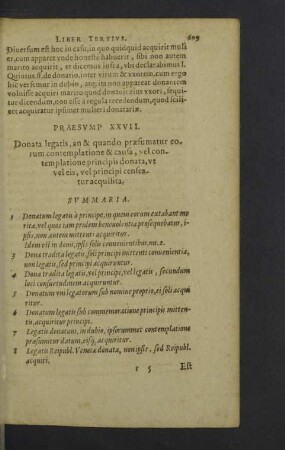 LIBER TERTIVS. 609
Diuersum est hoc in casu, in quo quidquid acquirit muli
er, cum apparet vnde honeste habuerit, sibi non autem
marito acquirit, et dicemus infra, vbi declarabimus l.
Quintus ff. de donatio. inter virum & vxorem, cum ergo
hic versemur in dubio, an
voluisse acquiri marito quod donauit eius vxori, sequi
tur dicendum, non esse à regula recedendum, quod scili
cet acquiratur ipsimet mulieri donatariæ.
PRAESVMP XXVII.
Donata legatis, an & quando præsumatur eo-
rum contemplatione & causa, vel con-
templatione principis donata, vt
vel eis, vel principi censea-
tur acquisita.
SVMMARIA.
1 Donatum legato à principe, in quem eorum extabant me
rita, vel quòd iam pridem beneuolentia prosequebatur, i-
psis, non autem mittenti acquiritur.
Idem est in doni, ipsis solis conuenientibus. nu. e.
3 Dona tradita legati, soli principi mittenti conuenientia,
non legati, sed principi acquiruntur.
4 Dona tradita legatis, vel principi, vel legatis, secundum
loci consuetudinem acquiruntur.
5 Donatum legatorum sub nomine proprio, ei soli acqui
ritur.
6 Donatum legatis sub commemoratione principis mitten-
tis, acquiritur principi.
7 Legatis donatum, in dubio, ipsorummet contemplatione
præsumitur datum, eisq; acquiritur.
8 Legatis Reipubl. Venetæ donata, non ipsis, sed Reipubl.
acquiri.
r 5 Est